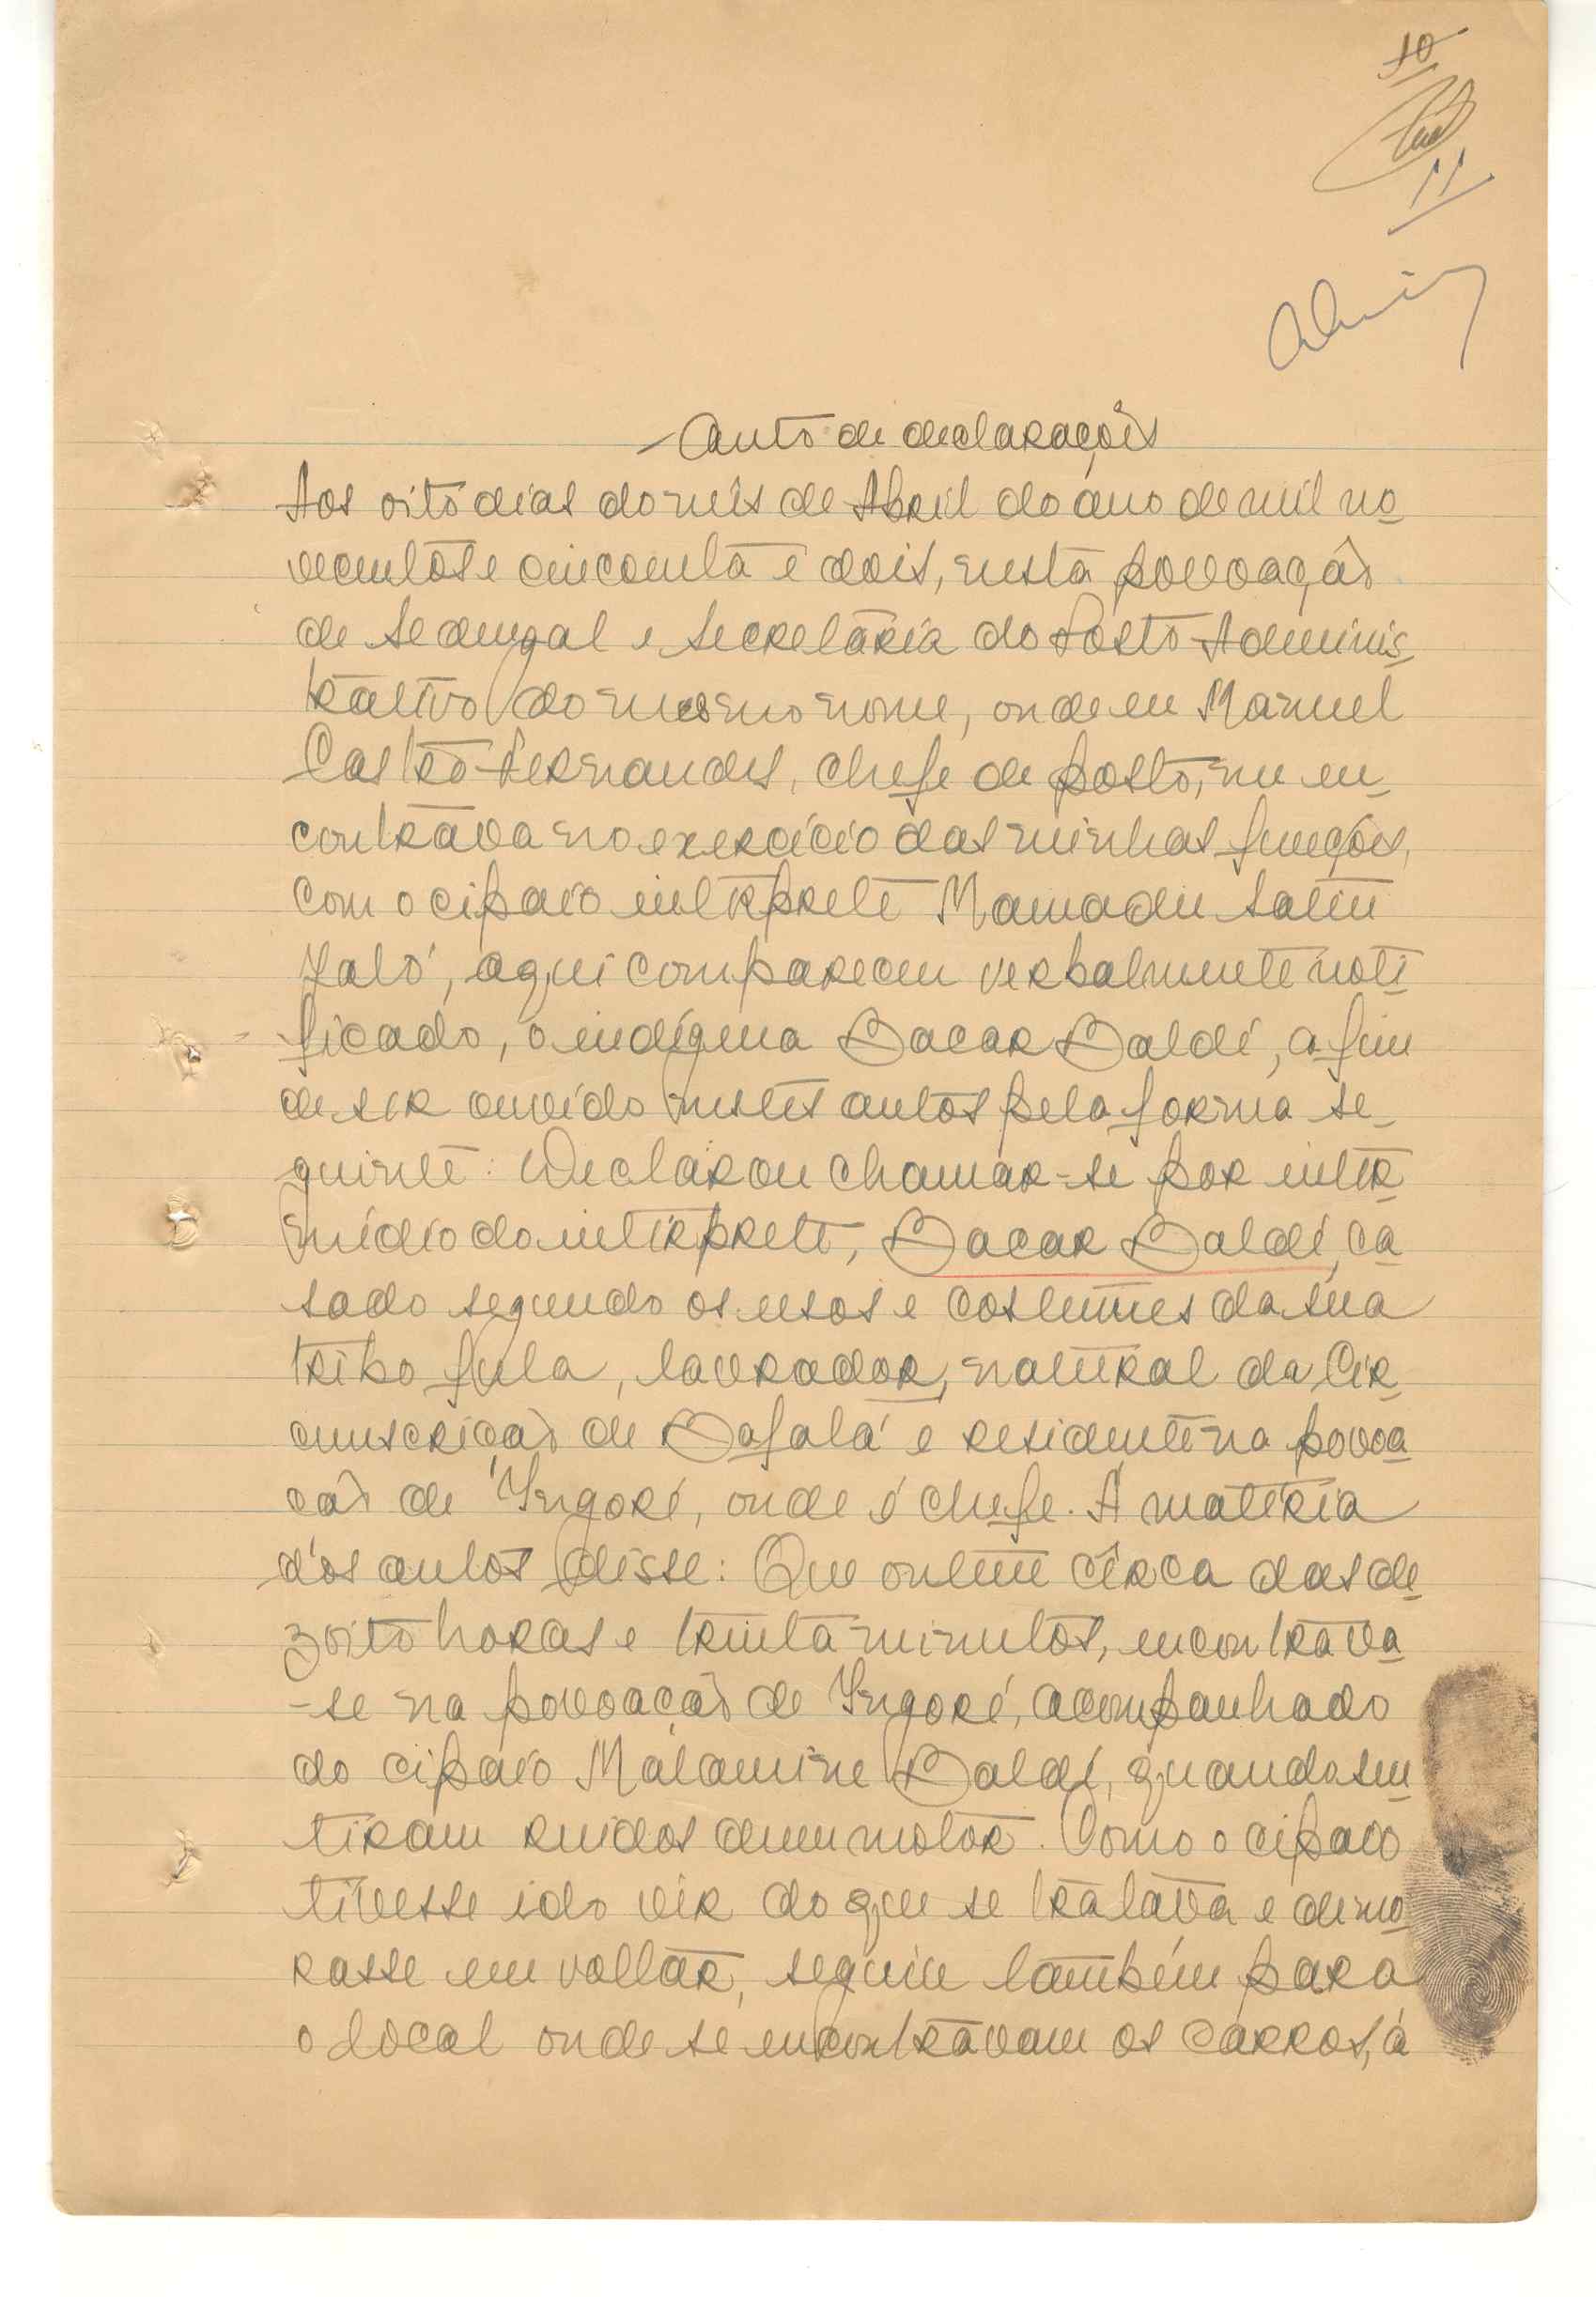 10
11
Auto de declarações
Aos oito dias do mês de Abril do ano de mil no
vecentos e cincoenta e dois, nesta povoação
de Sedengal e secretaria do Posto Adminis
trativo do mesmo nome, onde eu Manuel
Castro Fernandes, chefe de posto, me en
contrava no exercício das minhas funções,
com o cipaio intérprete Mamadu Satú
Jaló, aqui compareceu verbalmente noti
ficado, o indígena Bacar Baldé, a fim
de ser ouvido nestes autos pela forma se
guinte: Declarou chamar-se por inter
médio do intérprete, Bacar Baldé, ca
sado segundo os usos e costumes da sua
tribo fula, lavrador, natural da Cir
cunscrição de Bafatá e residente na povoa
ção de Ingoré, onde é chefe. Á matéria
dos autos disse: Que ontem cêrca das de
zoito horas e trinta minutos, encontrava
-se na povoação de Ingoré, acompanhado
do cipaio Malamine Baldé, quando sen
tiram ruidos dum motor. Como o cipaio
tivesse ido vêr do que se tratava e demo
rasse em voltar, seguiu também para
o local onde se encontravam os carros, á